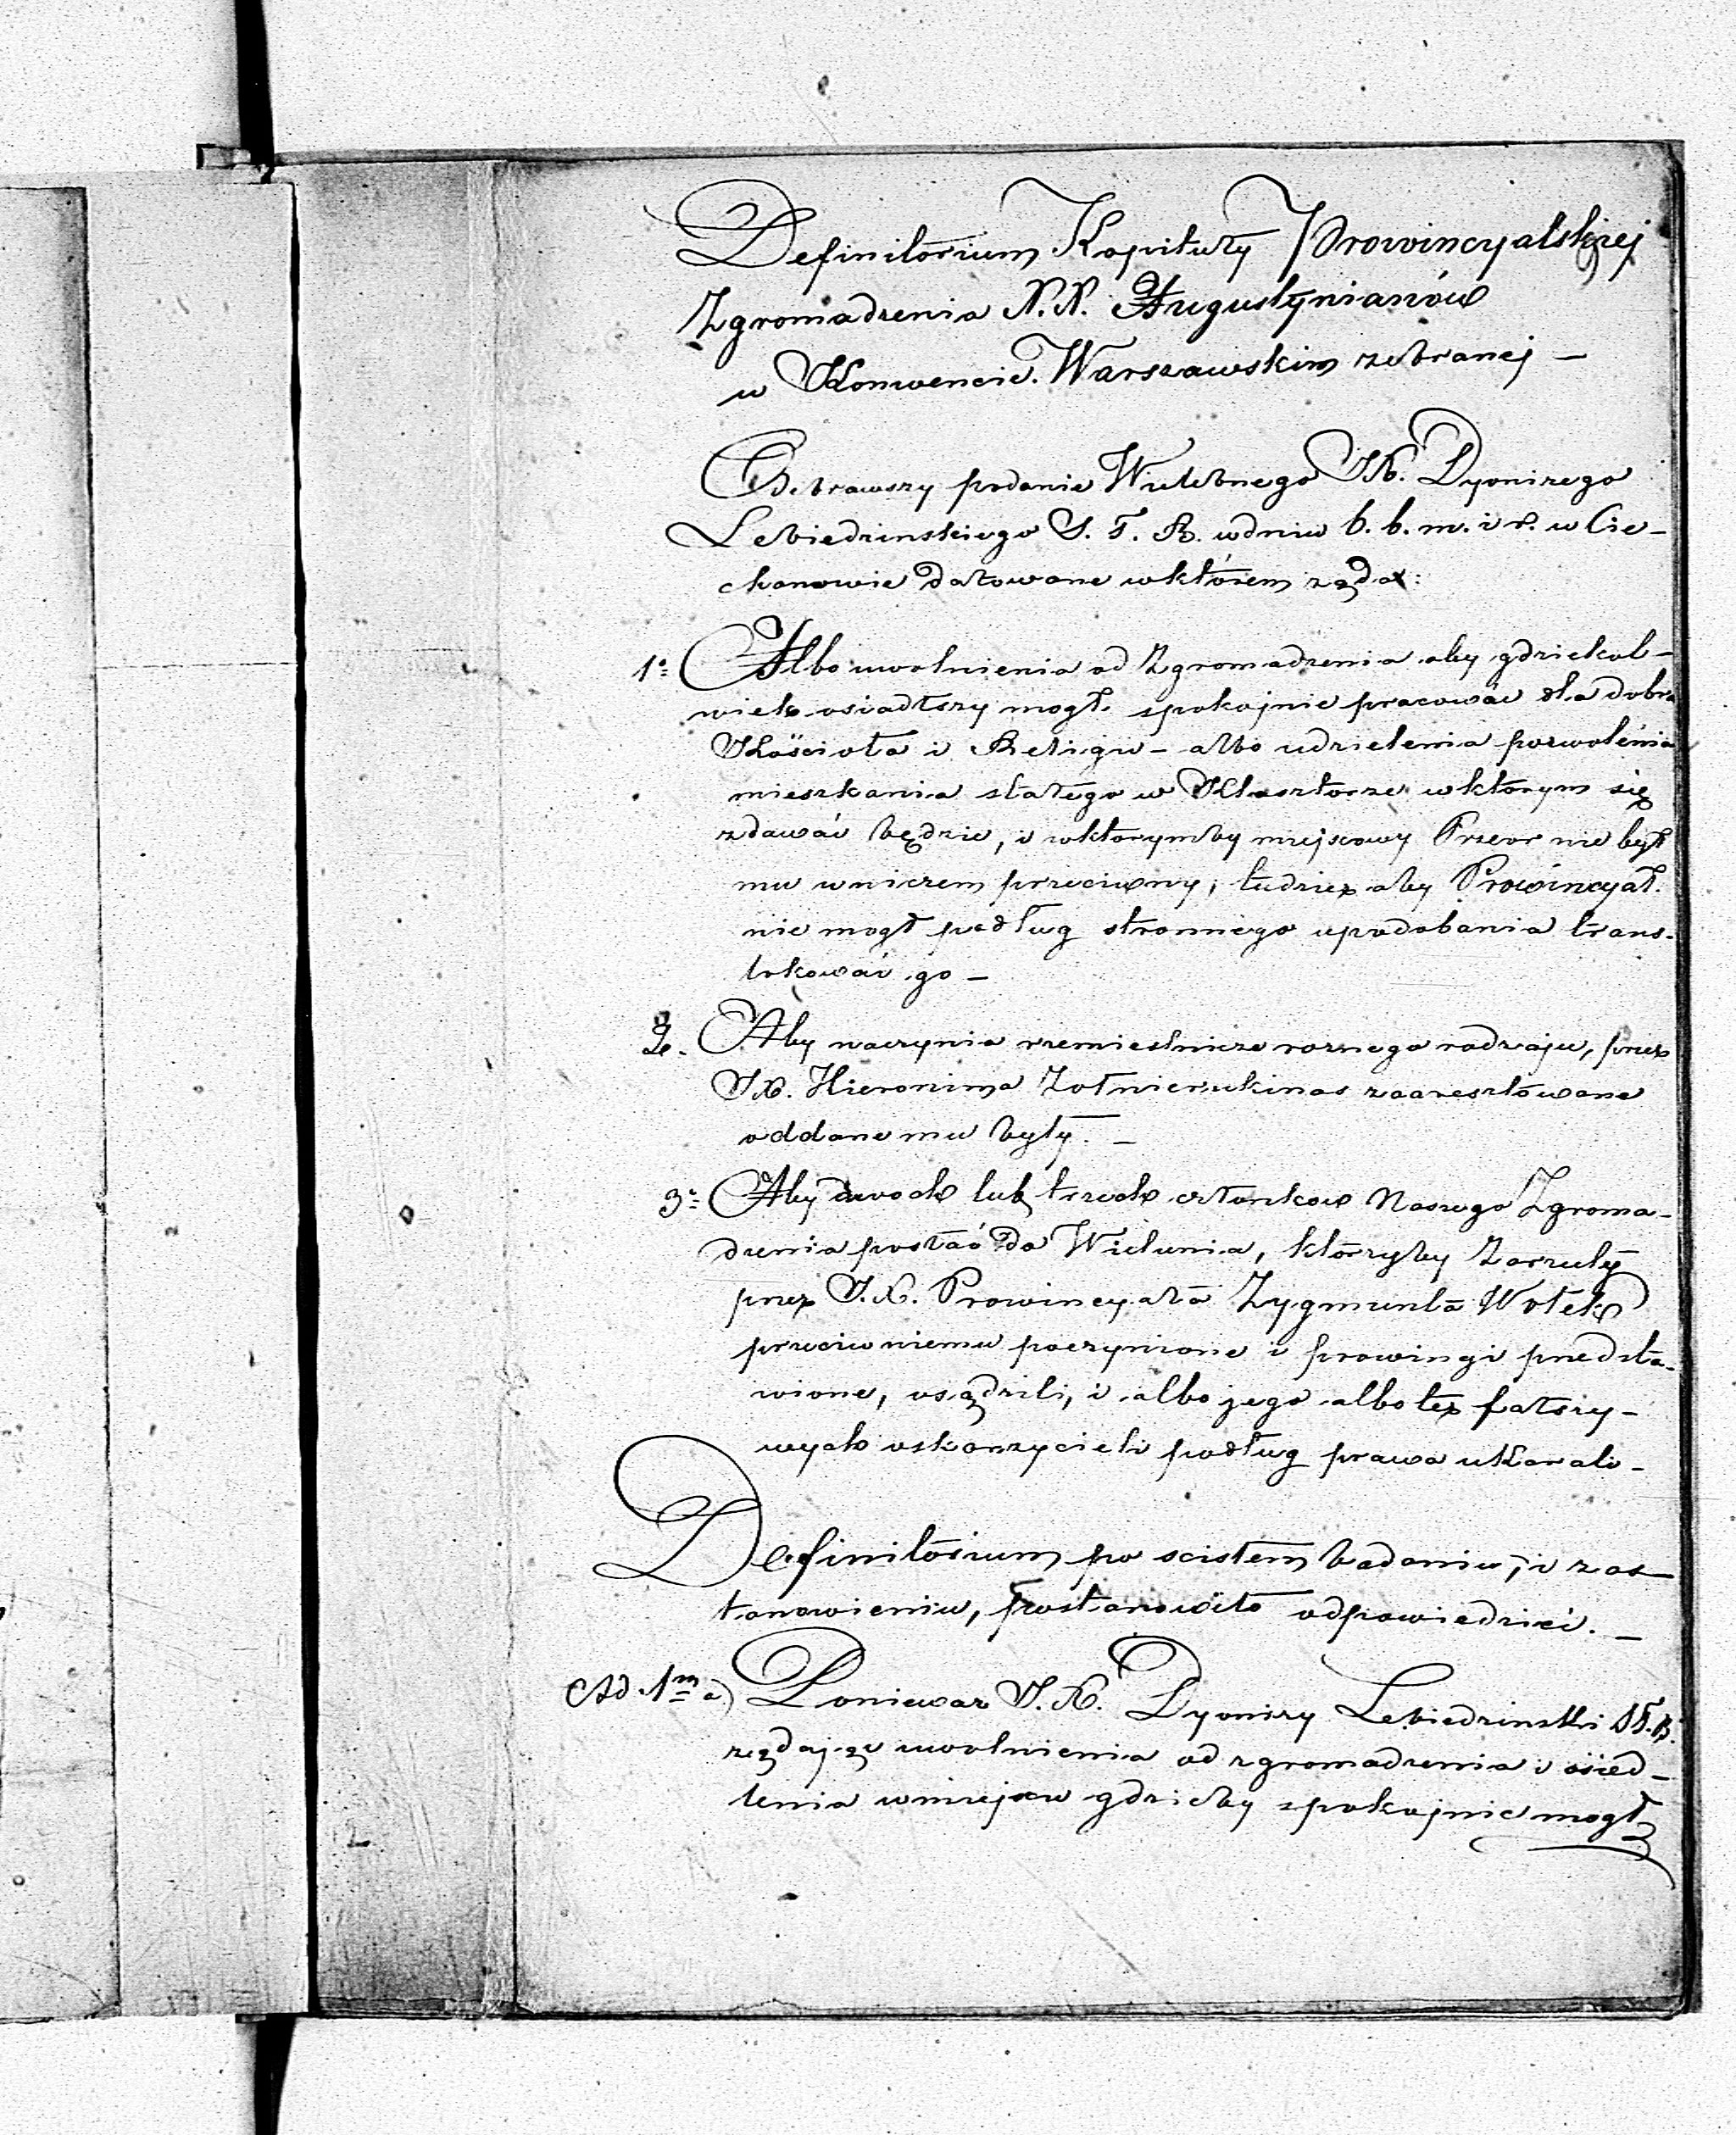 Definitorium Kapituły Prowincyalskiej
Zgromadzenia X.X. Augustynianów
w Konwencie Warszawskim zebranej —
Odebrawszy podanie Wielebnego JX. Dyonizego
Lebiedzinskiego S. T. B. w dniu 6. b. m. i r. w Cie-
chanowie datowane w którem ząda:
1° Albo uwolnienia od Zgromadzenia aby gdziekol-
wiek osiadłszy mogł spokojnie pracować dla dobra
Kościoła i Religii – albo udzielenia pozwolenia
mieszkania stałego w Klasztorze w ktorym się
zdawać będzie, i w ktorymby miejscowy Przeor nie był
mu w niczem przeciwny, tudziez aby Prowincyał
nie mogł podług stronnego upodobania trans-
lokować go –
2. Aby naczynia rzemieslnicze roznego rodzaju, przez
JX. Hieronima zaaresztowane
oddane mu były. –
3° Aby dwoch lub trzech członkow Naszego Zgroma-
dzenia posłać do Wielunia, ktorzyby Zarzuty
przez J.X. Prowincyała Zygmunta Wołek
przeciw niemu poczynione i prowingi przedsta-
wione, osądzili, i albo jego albo tez fałszy-
wych oskarzycieli podług prawa ukarali –
Definitorium po scisłem badaniu, i zas
tanowieniu, postanowiło odpowiedzieć. –
Ad 1m a) Poniewaz J.X. Dyonizy Lebiedzinski S.T.B.
ządając uwolnienia od zgromadzenia i osied-
lenia w miejscu gdzieby spokojnie mogł